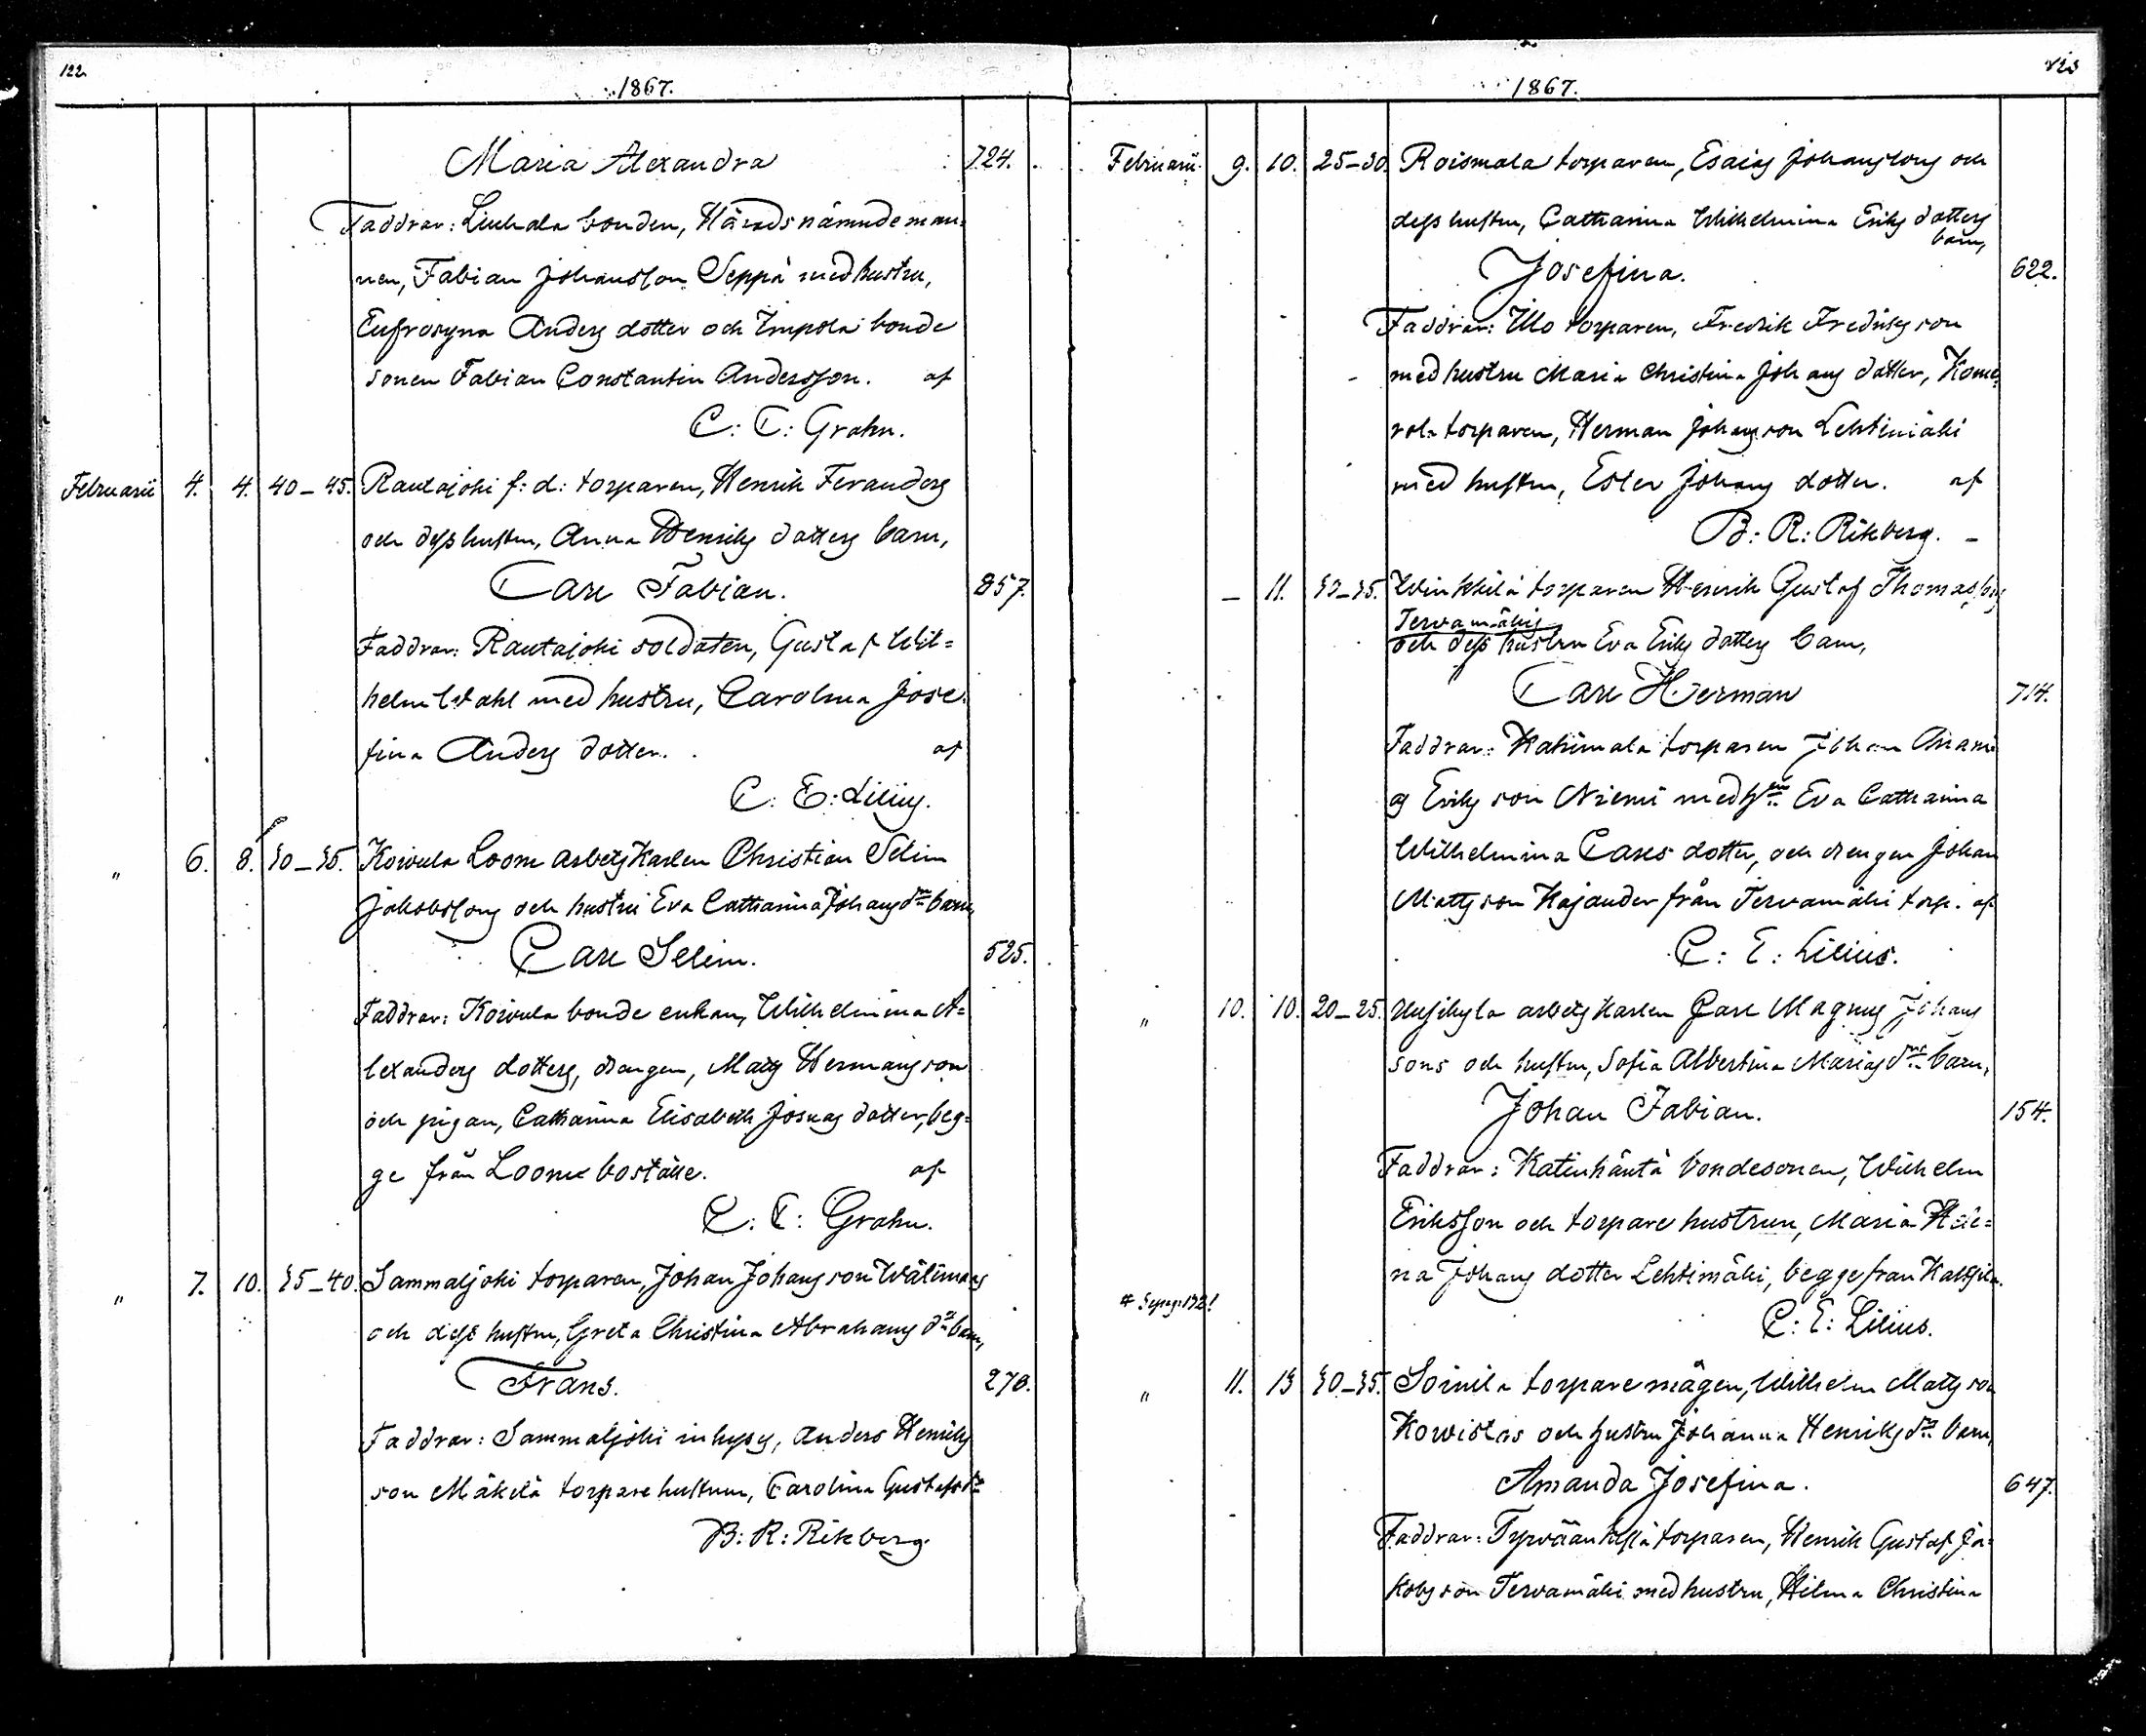 122.
1867.
Maria Alexandra 724.
Faddrar: Liuhala bonden, Häradsnämndeman=
nen, Fabian Johansson Seppä med hustru,
Eufrosyna Anders dotter och Impola bonde
sonen Fabian Constantin Andersson. af
C: C: Grahn.
Februarii 4. 4. 40–45. Rautajoki f: d: torparen, Henrik Feranders
och dess hustru, Anna Henriks dotters barn,
Carl Fabian. 857.
Faddrar: Rautajoki soldaten, Gustaf Wil=
helm Stahl med hustru, Carolina Jose=
fina Anders dotter. af
C: E: Lilius.
" 6. 8. 30–35. Koivula Loom arbetskarlen Christian Selim
Jakobssons och hustru Eva Catharina Johans dr barn,
Carl Selim. 525.
Faddrar: Koivula bonde enkan, Wilhelmina A=
lexanders dotters, drengen, Mats Hermansson
och pigan, Catharina Elisabeth Josuas dotter, beg=
ge från Loome boställe. af
C: C: Grahn.
" 7. 10. 35–40. Sammaljoki torparen, Johan Johansson Wälimäkis
och dess hustru, Greta Christina Abrahams dr barn,
Frans. 270.
Faddrar: Sammaljoki inhyses, Anders Henriks
son Mäkilä torpare hustrun, Carolina Gustafs dr
B: R: Rikberg.
123
1867.
Februarii 9. 10. 25–30. Roismala torparen, Esaias Johanssons och
dess hustru, Catharina Wilhelmina Eriks dotters
barn,
Josefina. 622.
Faddrar: Illo torparen, Fredrik Fredriksson
med hustru Maria Christina Johans dotter, Kome=
rola torparen, Herman Johansson Lehtimäki
med hustru, Ester Johans dotter. af
B: R: Rikberg.
– 11. 30–35. Winkkilä torparen Henrik Gustaf Thomassons
Tervamäkis
och dess hustru Eva Eriks dotters barn,
Carl Herman 714.
Faddrar: Kahimala torparen Johan Anani=
as Eriksson Niemi med hru Eva Catharina
Wilhelmina Carls dotter, och drengen Johan
Mattsson Kajander från Tervamäki torp. af
C: E: Lilius.
" 10. 10. 20–25. arbetskarlen Carl Magnus Johans
sons och hustru, Sofia Albertina Marias drs barn,
Johan Fabian. 154.
Faddrar: Katinhäntä bondesonen, Wilhelm
Eriksson och torpare hustrun, Maria Hele=
na Johans dotter Lehtimäki, begge från Kaltsila.
C: E: Lilius.
" 11. 13 30–35. Soinila torparemågen, Wilhelm Mattsson
Kowistos och hustru Johanna Henriks dr barn,
Amanda Josefina. 647.
Faddrar: Tyrväänkylä torparen, Henrik Gustaf Ja=
kobsson Tervamäki med hustru, Hilma Christina